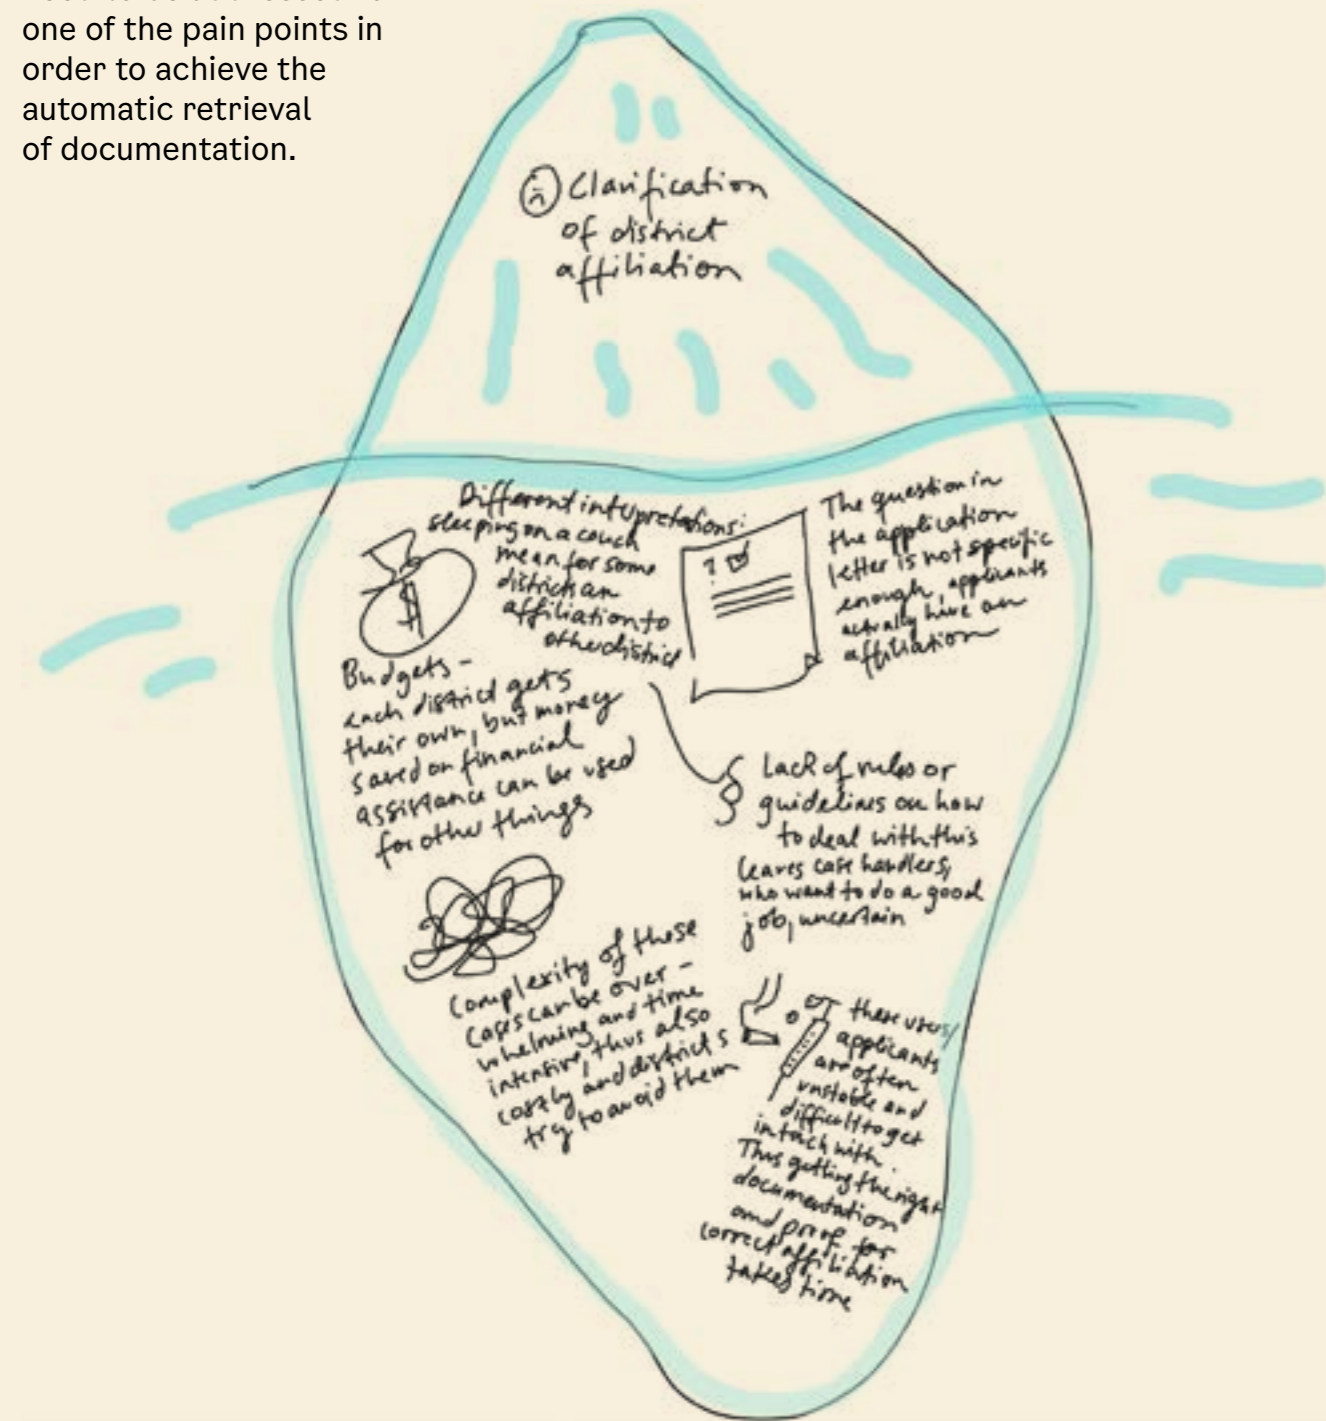 one of the pain points in
order to achieve the
automatic retrieval
of documentation.
Clarification
of district
affiliation
Different interpretations:
sleeping on a couch
mean for some
districts an
affiliation to
other district
? 
The question in
the application
letter is not specific
enough, applicants
actually have an
affiliation
$
Budgets -
each district gets
their own, but money
saved on financial
assistance can be used
for other things
Lack of rules or
guidelines on how
to deal with this
leaves case handlers,
who want to do a good
job, uncertain
Complexity of these
cases can be over -
whelming and time
intensive, thus also
costly and districts
try to avoid them
these users/
applicants
are often
unstable and
difficult to get
in touch with.
Thus getting the right
documentation
and proof for
correct affiliation
takes time